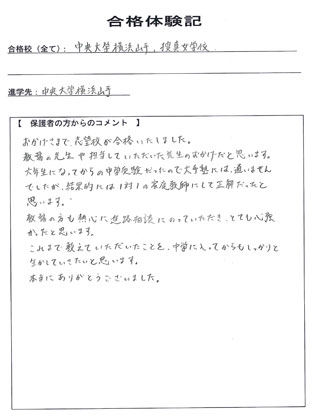 合格体験記
合格校(全て): 中央大学横浜山手, 捜真女学校
進学先: 中央大学横浜山手
【 保護者の方からのコメント 】
おかげさまで、志望校が合格いたしました。
教務の先生や担当していただいた先生のおかげだと思います。
六年生になってからの中学受験だったので大手塾には、通いません
でしたが、結果的には1対1の家庭教師にして正解だったと
思います。
教務の方も熱心に進路相談にのっていただき、とても心強
かったと思います。
これまで教えていただいたことを、中学に入ってからもしっかりと
生かしていきたいと思います。
本当にありがとうございました。